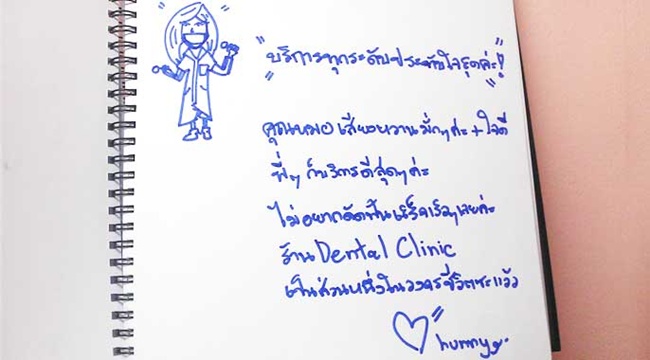 "บริการทุกระดับประทับใจสุดค่ะ!"
คุณหมอเสียงหวานมั่กๆค่ะ + ใจดี
พี่ๆ ก็บริการดีสุดๆค่ะ
ไม่อยากดัดฟันเสร็จเร็วๆเลยค่ะ
ร้าน Dental Clinic
เป็นส่วนหนึ่งในวงจรชีวิตซะแล้ว